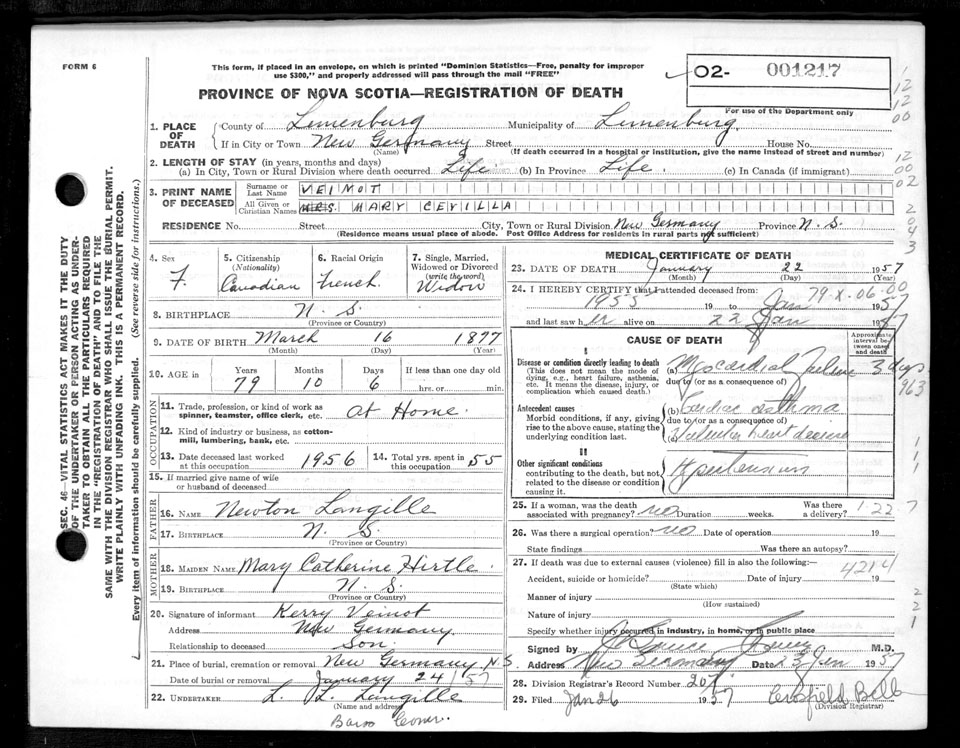 FORM 6
This form, if placed in an envelope, on which is printed "Dominion Statistics—Free, penalty for improper
use $300," and properly addressed will pass through the mail "FREE"
02- 001217
PROVINCE OF NOVA SCOTIA—REGISTRATION OF DEATH
For use of the Department only
1. PLACE OF DEATH County of Lunenburg Municipality of Lunenburg
If in City or Town New Germany Street House No.
(Name) (If death occurred in a hospital or institution, give the name instead of street and number)
2. LENGTH OF STAY (in years, months and days)
(a) In City, Town or Rural Division where death occurred Life (b) In Province Life. (c) In Canada (if immigrant)
3. PRINT NAME OF DECEASED Surname or Last Name VEINOT
All Given or Christian Names MRS. MARY CEVILLA
RESIDENCE No. Street City, Town or Rural Division New Germany Province N.S.
(Residence means usual place of abode. Post Office Address for residents in rural parts not sufficient)
4. Sex F.
5. Citizenship (Nationality) Canadian
6. Racial Origin French.
7. Single, Married, Widowed or Divorced (write the word) Widow
8. BIRTHPLACE N. S.
(Province or Country)
9. DATE OF BIRTH March 16 1877
(Month) (Day) (Year)
10. AGE in Years Months Days If less than one day old
79 10 6 hrs. or min.
OCCUPATION
11. Trade, profession, or kind of work as spinner, teamster, office clerk, etc. At Home.
12. Kind of industry or business, as cotton-mill, lumbering, bank, etc.
13. Date deceased last worked at this occupation 1956
14. Total yrs. spent in this occupation 55
15. If married give name of wife or husband of deceased
FATHER
16. NAME Newton Langille
17. BIRTHPLACE N. S.
(Province or Country)
MOTHER
18. MAIDEN NAME Mary Catherine Hirtle.
19. BIRTHPLACE N. S.
(Province or Country)
20. Signature of informant Kerry Veinot
Address New Germany.
Relationship to deceased Son.
21. Place of burial, cremation or removal New Germany, N.S.
Date of burial or removal January 24/57
22. UNDERTAKER L. L. Langille
(Name and address)
MEDICAL CERTIFICATE OF DEATH
23. DATE OF DEATH January 22 1957
(Month) (Day) (Year)
24. I HEREBY CERTIFY that I attended deceased from:
1955 19 to Jan 1957
79-X-06-00
and last saw her alive on 22 Jan 1957
CAUSE OF DEATH
Approximate interval between onset and death
I
Disease or condition directly leading to death
(This does not mean the mode of dying, e.g., heart failure, asthenia, etc. It means the disease, injury, or complication which caused death.)
(a) Myocardial Failure 3 days
due to (or as a consequence of)
Antecedent causes
Morbid conditions, if any, giving rise to the above cause, stating the underlying condition last.
(b) Cardiac asthma
due to (or as a consequence of)
Valvular heart disease
II
Other significant conditions
contributing to the death, but not related to the disease or condition causing it.
Hypertension
25. If a woman, was the death associated with pregnancy? no Duration weeks. Was there a delivery?
1-22 7
26. Was there a surgical operation? no Date of operation 19
State findings Was there an autopsy?
27. If death was due to external causes (violence) fill in also the following:—
4214
Accident, suicide or homicide? Date of injury 19
(State which)
Manner of injury
(How sustained)
Nature of injury
Specify whether injury occurred in industry, in home, or in public place
Signed by M.D.
Address New Germany Date 23 Jan 1957
28. Division Registrar's Record Number 207
29. Filed Jan 26 1957
(Division Registrar)
SEC. 46—VITAL STATISTICS ACT MAKES IT THE DUTY
OF THE UNDERTAKER OR PERSON ACTING AS UNDER-
TAKER TO OBTAIN ALL THE PARTICULARS REQUIRED
IN THE "REGISTRATION OF DEATH" AND TO FILE THE
SAME WITH THE DIVISION REGISTRAR WHO SHALL ISSUE THE BURIAL PERMIT.
WRITE PLAINLY WITH UNFADING INK. THIS IS A PERMANENT RECORD.
Every item of information should be carefully supplied. (See reverse side for instructions.)